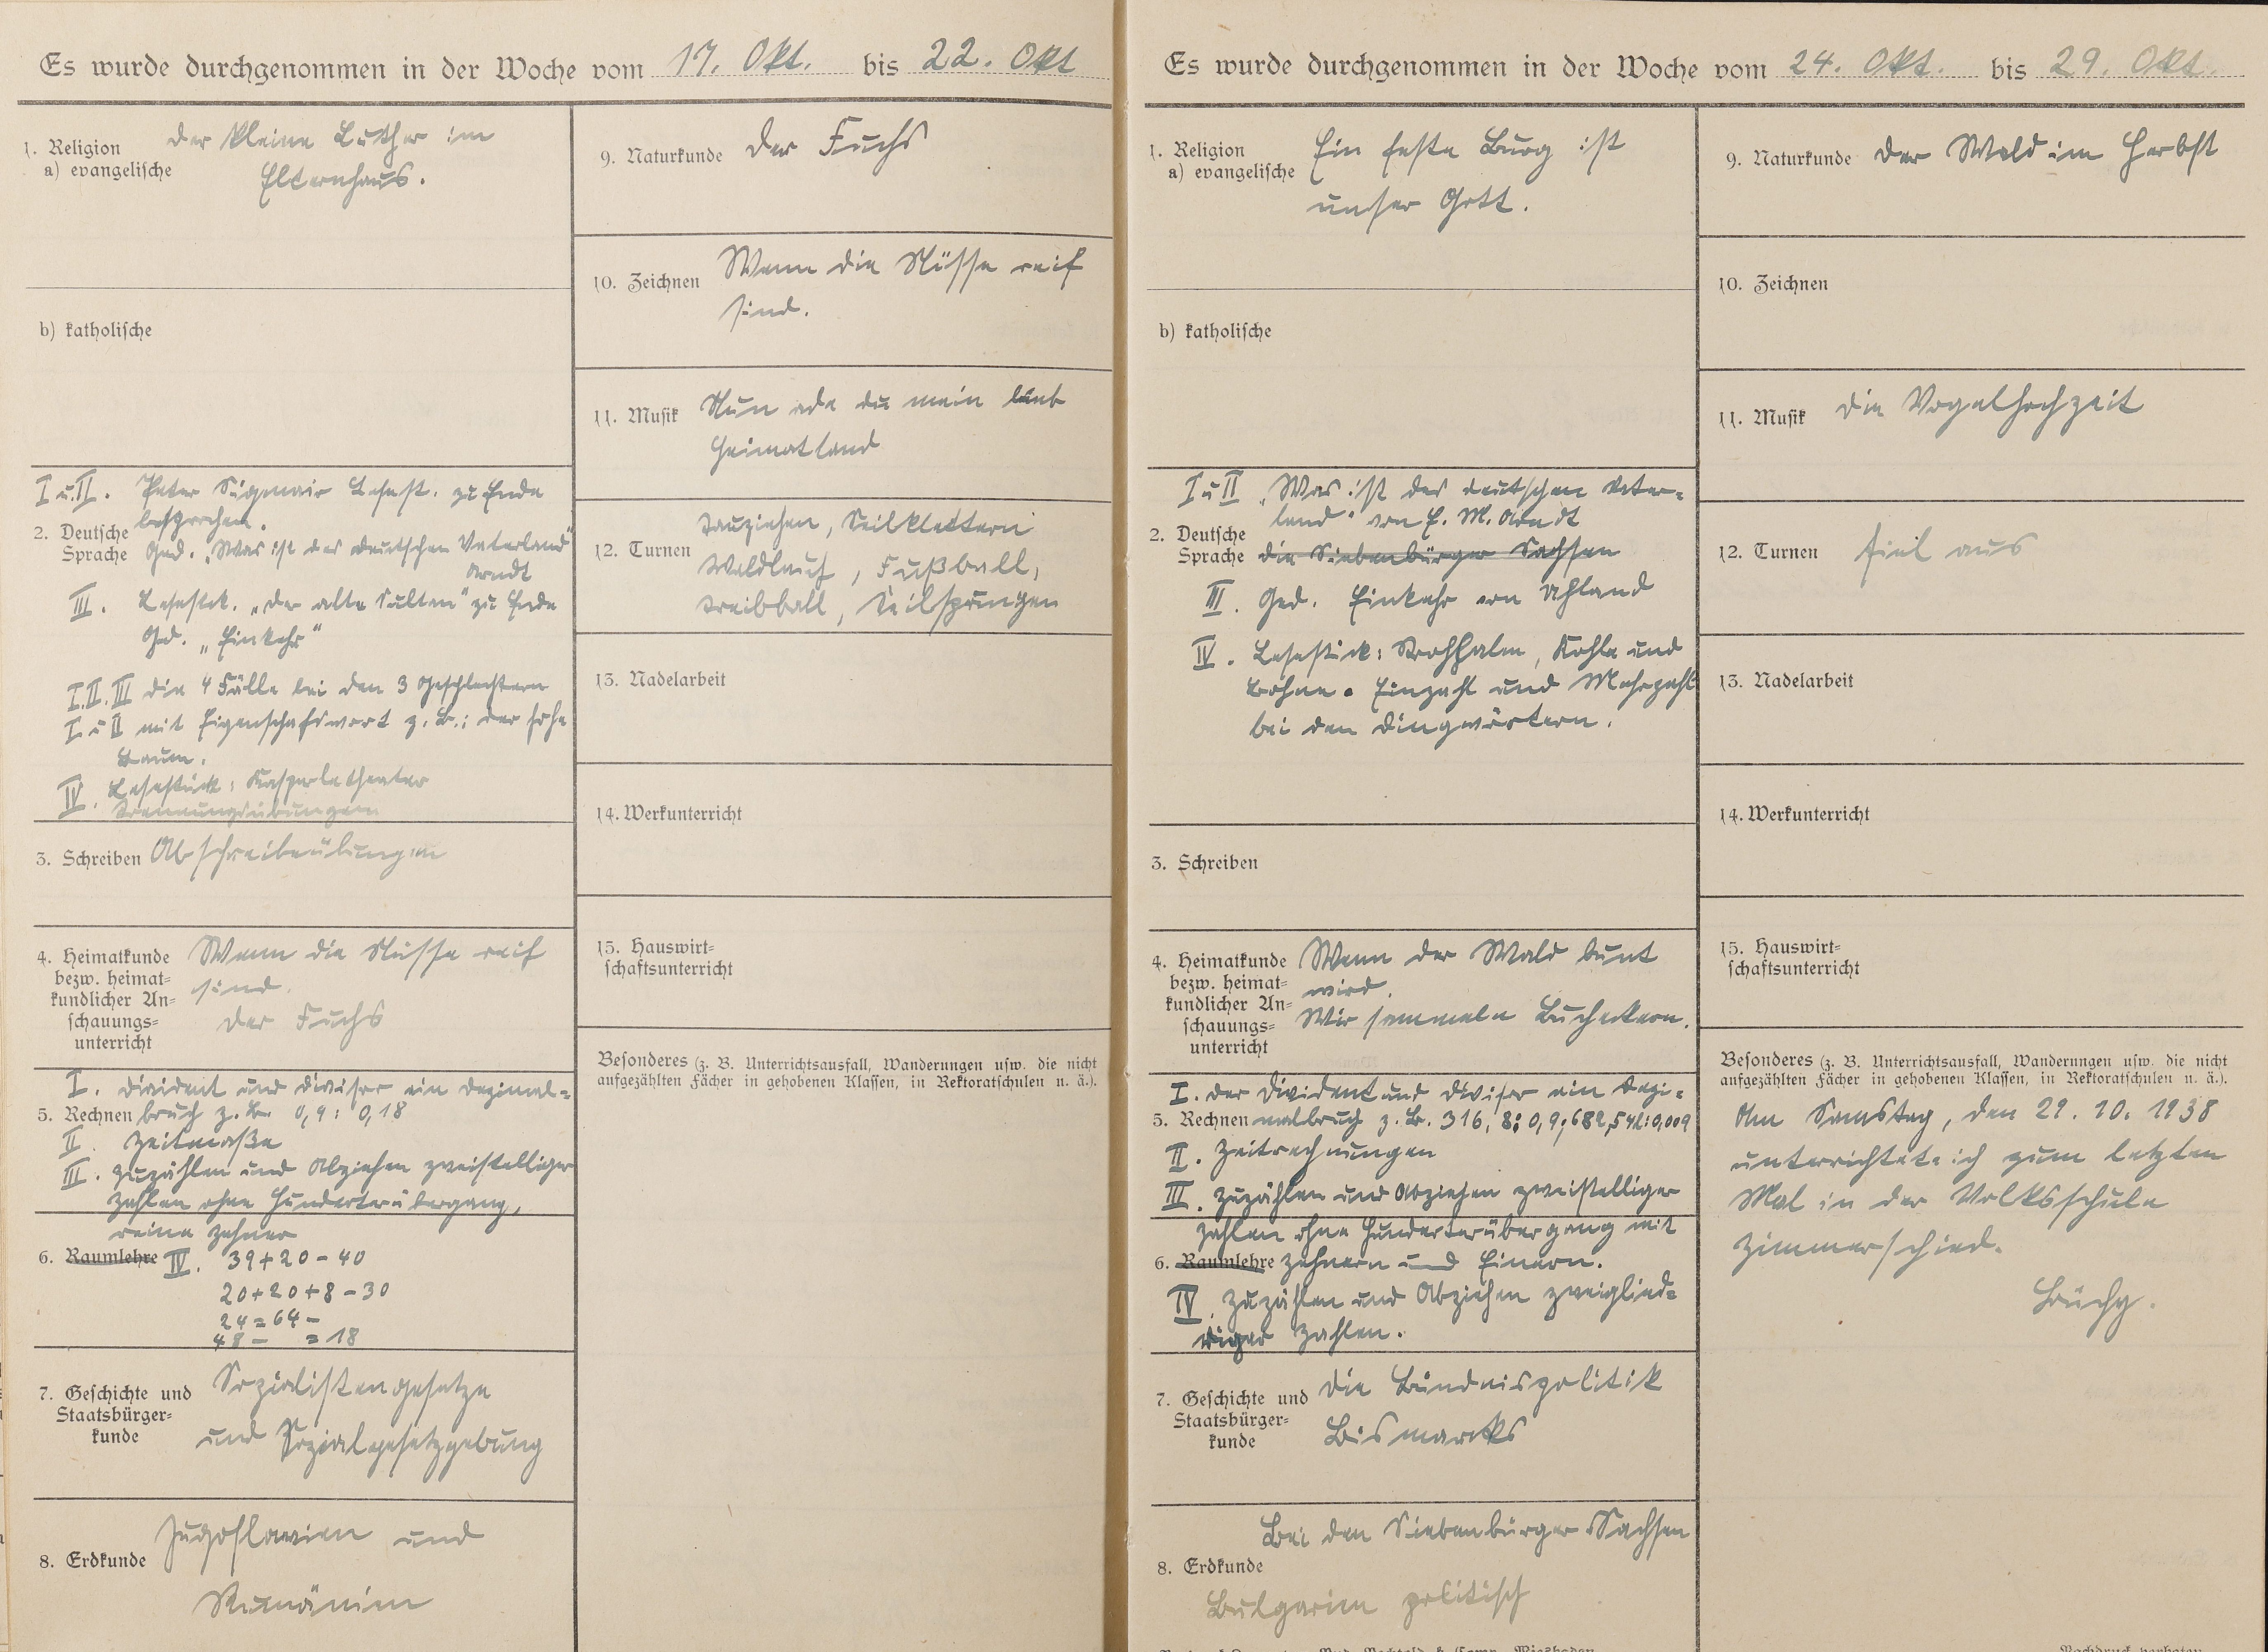 Es wurde durchgenommen in der Woche vom 17. Okt. bis 22. Okt
1. Religion
a) evangelische
Der kleine Luther im
Elternhaus.
b) katholische
2. Deutsche
Sprache
I u. II. Peter Sigmair Lesest. zu Ende
besprochen.
Ged. „Was ist des deutschen Vaterland"
Arndt
III. Lesestck. „Der alte Sultan" zu Ende
Ged. „Einkehr"
I. II. III die 4 Fälle bei den 3 Geschlechtern
I. u II mit Eigenschaftswort z. B.: der hohe
Baum.
IV. Lesestück: Kasperletheater
Trennungsübungen
3. Schreiben Abschreibeübungen
4. Heimatkunde
bezw. heimat-
kundlicher An-
schauungs-
unterricht
Wenn die Nüsse reif
sind.
Der Fuchs
I. Divident und Divisor ein Dezimal-
5. Rechnen bruch z. B. 0,9 : 0,18
II. Zeitmaße
III. Zuzählen und Abziehen zweistelliger
Zahlen ohne Hunderterübergang,
reine Zehner
6. Raumlehre IV. 39+20-40
20+20+8-30
24=64-
48- =18
7. Geschichte und
Staatsbürger-
kunde
Sozialistengesetze
und Sozialgesetzgebung
8. Erdkunde
Jugoslawien und
Rumänien
9. Naturkunde Der Fuchs
10. Zeichnen
Wenn die Nüsse reif
sind.
11. Musik
Nun ade du mein lieb
Heimatland
12. Turnen
Tauziehen, Seilklettern
Waldlauf, Fußball,
Treibball, Seilspringen
13. Nadelarbeit
14. Werkunterricht
15. Hauswirt-
schaftsunterricht
Besonderes (z. B. Unterrichtsausfall, Wanderungen usw. die nicht
aufgezählten Fächer in gehobenen Klassen, in Rektoratschulen u. ä.).
Es wurde durchgenommen in der Woche vom 24. Okt. bis 29. Okt.
1. Religion
a) evangelische
Ein feste Burg ist
unser Gott.
b) katholische
2. Deutsche
Sprache
I u II „Was ist des deutschen Vater-
land" von E. M. Arndt
Die Siebenbürger Sachsen
III. Ged. Einkehr von Uhland
IV. Lesestück: Strohhalm, Kohle und
Bohne. Einzahl und Mehrzahl
bei den Dingwörtern.
3. Schreiben
4. Heimatkunde
bezw. heimat-
kundlicher An-
schauungs-
unterricht
Wenn der Wald bunt
wird.
Wir sammeln Bucheckern.
I. Der Divident und Divisor ein Dezi-
5. Rechnen malbruch z. B. 316,8:0,9; 682,542:0,009
II. Zeitrechnungen
III. Zuzählen und Abziehen zweistelliger
Zahlen ohne Hunderterübergang mit
6. Raumlehre Zehnern und Einern.
IV. Zuzählen und Abziehen zweiglied-
riger Zahlen.
7. Geschichte und
Staatsbürger-
kunde
Die Bündnispolitik
Bismarcks
8. Erdkunde
Bei den Siebenbürger Sachsen
Bulgarien politisch
9. Naturkunde Der Wald im Herbst
10. Zeichnen
11. Musik Die Vogelhochzeit
12. Turnen fiel aus
13. Nadelarbeit
14. Werkunterricht
15. Hauswirt-
schaftsunterricht
Besonderes (z. B. Unterrichtsausfall, Wanderungen usw. die nicht
aufgezählten Fächer in gehobenen Klassen, in Rektoratschulen u. ä.).
Am Samstag, den 29. 10. 1938
unterrichtete ich zum letzten
Mal in der Volksschule
Zimmerschied.